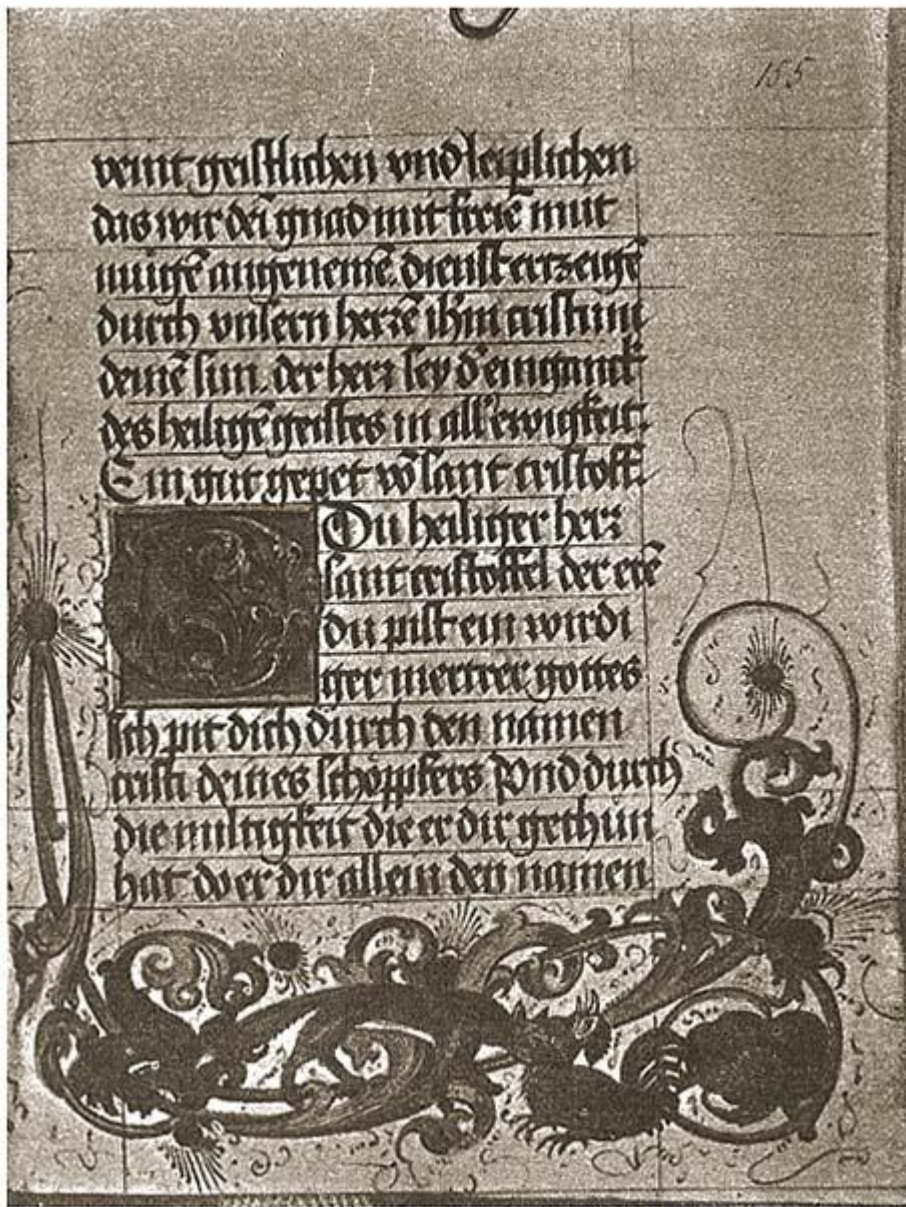 155
veint geistlichen vnd leiplichen
das wir dei gnad mit freiē mut
mügē angenemē dienst erzeigē
durch vnsern herzē ihm cristum
deinē sun. der herz sey d' einganck
des heiligē geistes in all' ewigkeit.
Ein gut gepet vō sant cristoff.
Du heiliger herz
sant cristoffel der erē
du pist ein wirdi
ger mertrer gottes
Ich pit dich durch den namen
cristi deines schöppfers Vnd durch
die miltigkeit die er dir gethun
hat do er dir allein den namen